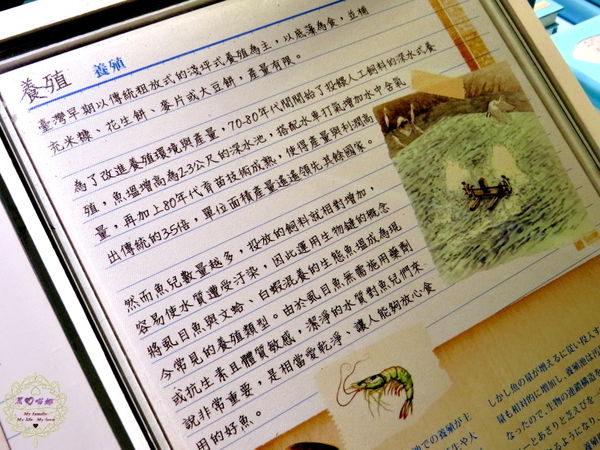 養殖 養殖
臺灣早期以傳統粗放式的淺坪式養殖為主，以底藻為食，並補
充米糠、花生餅、麥片或大豆餅，產量有限。
為了改進養殖環境與產量，70-80年代間開始了投餵人工飼料的深水式養
殖，魚塭增高為2-3公尺的深水池，搭配水車打氣增加水中含氧
量，再加上80年代育苗技術成熟，使得產量與利潤高
出傳統的3.5倍，單位面積產量遠遠領先其餘國家。
然而魚兒數量越多，投放的飼料就相對增加，
容易使水質遭受汙染，因此運用生物鏈的概念
將虱目魚與文蛤、白蝦混養的生態魚塭成為現
今常見的養殖類型。由於虱目魚無需施用藥劑
或抗生素且體質敏感，潔淨的水質對魚兒們來
說非常重要，是相當愛乾淨、讓人能夠放心食
用的好魚。
しかし魚の量が増えるに
も相対的に増加し、養殖池は
なったので、生物の連鎖構造を
My family
My life My love